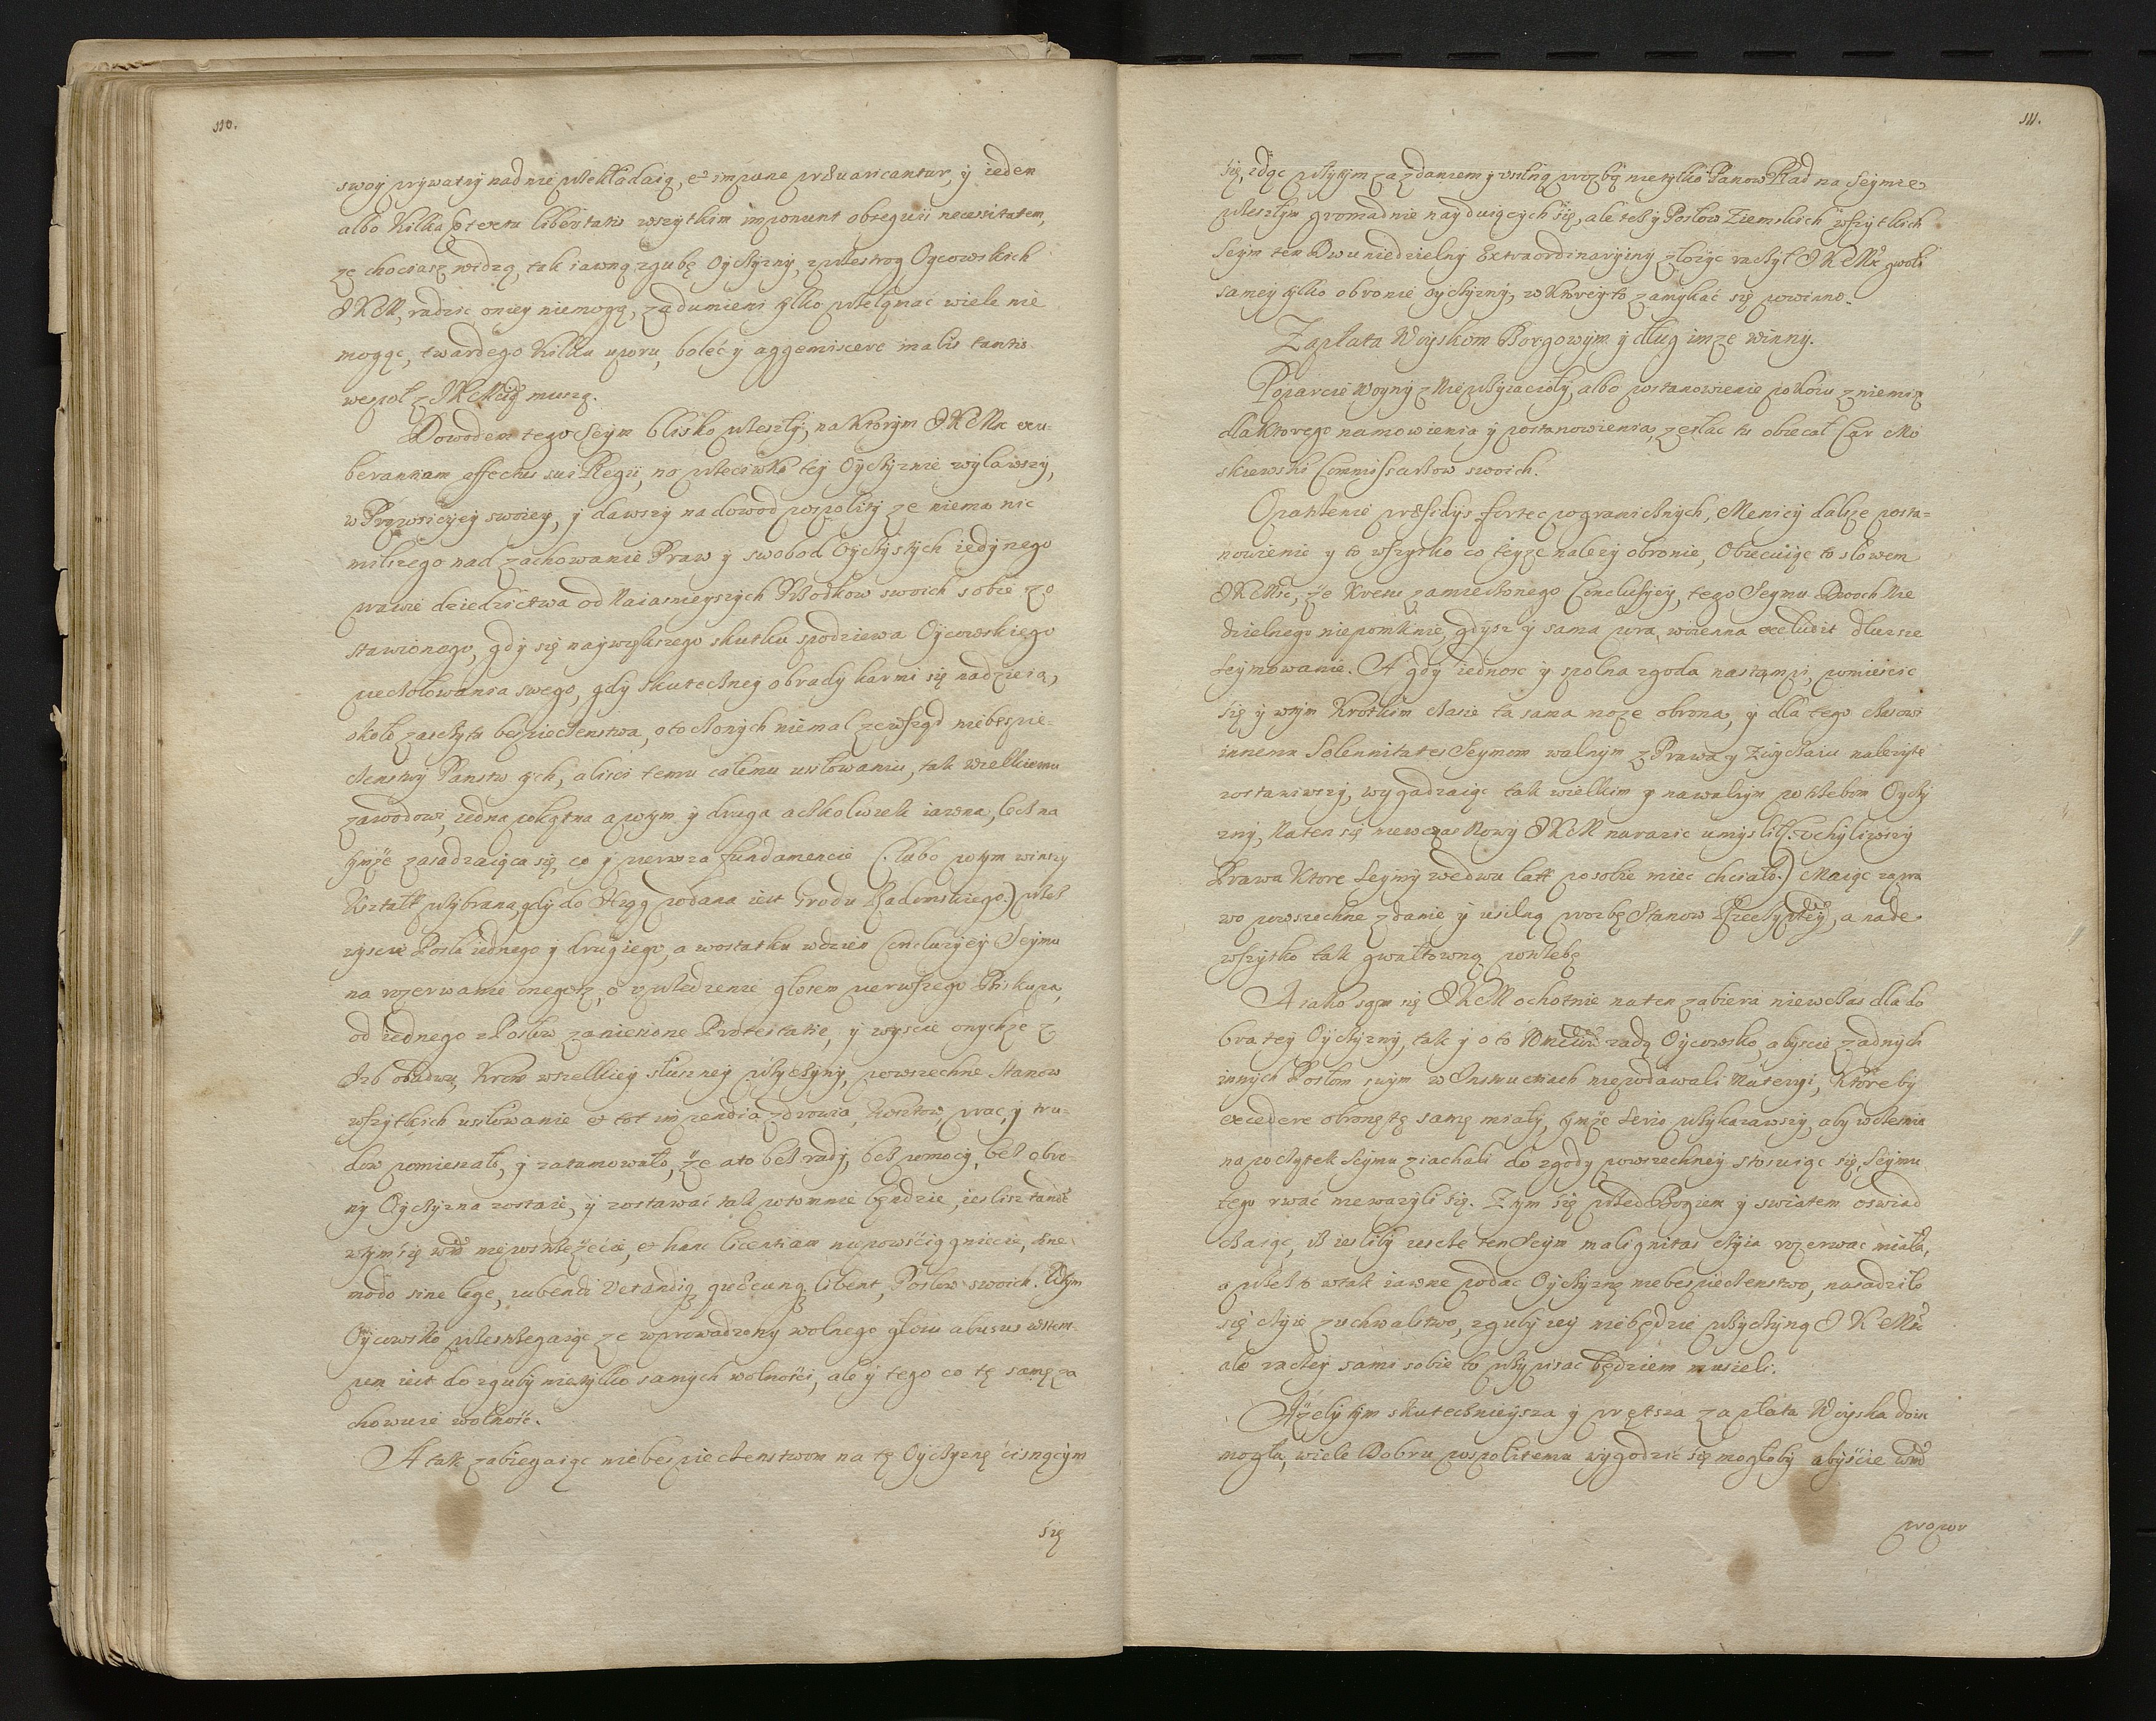 110.
swoy prywatny nad nie przekładaią, et impune prævaricantur, y ieden
albo kilka prætextu libertatis wszytkim imponunt obsequii necessitatem,
ze chociasz widzą tak iawną zgubę Oyczyzny, z przestrog Oycowskich
IKM, radzic oniey niemogą, zadumieni tylko przełamac wiele nie
mogąc, twardego kilku uporu, boleć y aggemiscere malis tantis
wespoł z IKMcią muszą.
Dowodem tego Seym blisko przeszły, na ktorym IKMc exu-
berantiam affectus sui Regii, na przeciwko tey Oyczyznie wylawszy,
w Propozicyey swoiey, y dawszy na dowod pospolity ze niema nic
milszego nad zachowanie Praw y swobod Oyczystych iedynego
prawie dziedzictwa od Naiasnieyszych Przodkow swoich sobie zo
stawionego, gdy się naywiększego skutku spodziewa Oycowskiego
pieczołowania swego, gdy skuteczney obrady karmi się nadzieią,
około zaszczytu bezpieczenstwa, otoczonych niemal zewsząd niebespie-
czenstwy Panstw tych, alisci temu całemu usiłowaniu, tak wielkiemu
zawodowi, iedna pokątna a potym y druga aczkolwiek iawna, lecz na
tymże zasadzaiąca się, co y pierwsza fundamencie (labo potym w inszy
kształt przybrana, gdy do Xiąg podana iest Grodu Radomskiego) przez
wyscie Posła iednego y drugiego, a wostatku w dzien Concluzyey Seymu
na rozerwanie onegosz, o uprzedzenie głosem pierwszego Biskupa,
od iednego z Posłow zaniesione Protestatie, y wyscie onychże z
Izb obudwu, krom wszelkiey słuszney przyczyny, powszechne Stanow
wszytkich usiłowanie et tot impendia zdrowia, kosztow, prac, y tru-
dow pomieszało, y zatamowało, że ato bez rady, bez pomocy, bez obro-
ny Oyczyzna zostaie, y zostawać tak potomnie będzie, iesliz tandem
w tym się wm nie postrzeżecie, et hanc licentiam niepowściągniecie, sine
modo sine lege, iubendi vetandiq quæcunq libent, Posłow swoich. W tym
Oycowsko przestrzegaiąc ze wprowadzony wolnego głosu abusus wstem
pem iest do zguby nietylko samych wolności, ale y tego co tę samę za
chowuie wolność.
A tak zabiegaiąc niebespieczenstwom na tę Oyczyznę cisnącym
się
111.
się, idąc przytym za zdaniem y usilną prozbą nietylko Panow Rad na Seymie
przeszłym gromadnie nayduiących się, ale też y Posłow Ziemskich wszytkich
Seym ten Dwuniedzielny Extraordinaryiny złożyc raczył IKMc gwoli
samey tylko obronie oyczyzny, w ktorey to zamykać się powinno.
Zapłata Woyskom Borgowym y dług imze winny.
Poparcie Woyny z Nieprzyiacioły, albo postanowienie pokoiu z niemi
dla ktorego namowienia y postanowienia, zesłac tu obiecał Car Mo
skiewski Commissarzow swoich.
Opatrzenie præsidys fortec pogranicznych, Menicy dalsze posta-
nowienie y to wszytko co teyze nalezy obronie, Obiecuiąc to słowem
IKMsc, że kresu zamierzonego Conclusyey, tego Seymu Dwoch Nie
dzielnego niepomknie, gdysz y sama pora, wiosenna excludit dłuzsze
Seymowanie. A gdy iednosc y spolna zgoda nastąmpi, pomiescic
się y w tym krotkim czasie ta sama moze obrona, y dla tego czasowi
insema Solennitates Seymom walnym z Prawa y Zwyczaiu nalezyte
zostawiwszy, wygadzaiąc tak wielkim y nawalnym potrzebom Oyczy
zny, Na ten się niewczas Nowy IKM narazic umyslił (uchyliwszy
Prawa ktore Seymy we dwu latt po sobie miec chciało.) Maiąc za pra
wo powszechne zdanie y usilną prozbę Stanow Rzeczyptey, a nade
wszytko tak gwałtowną potrzebę
A iako sam się IKM ochotnie na ten zabiera niewczas dla do
bra tey Oyczyzny, tak y o to żąda Oycowsko, abyscie zadnych
innych Posłom swym w Instructiach niepodawali Materyi, ktore by
excedere obronę tę samę miały, tymże serio przykazawszy, aby wczesnie
na początek Seymu ziachali do zgody powszechney stosuiąc się, Seymu
tego rwać nieważyli się. Zym się przed Bogiem y swiatem oswiad
czaiąc, iż iesliby iescze ten Seym malignitas czyia rozerwac miała,
a przez to w tak iawne podac Oyczyznę niebespieczenstwo, nasadziło
się czyie zuchwalstwo, zguby iey niebędzie przyczyną IKMsc
ale raczey sami sobie to przypisac będziem musieli.
Ażeby tym skutecznieysza y prętsza zapłata Woyska doiść
mogła, wiele Dobru pospolitemu wygodzić się mogłoby abyście wm
popor